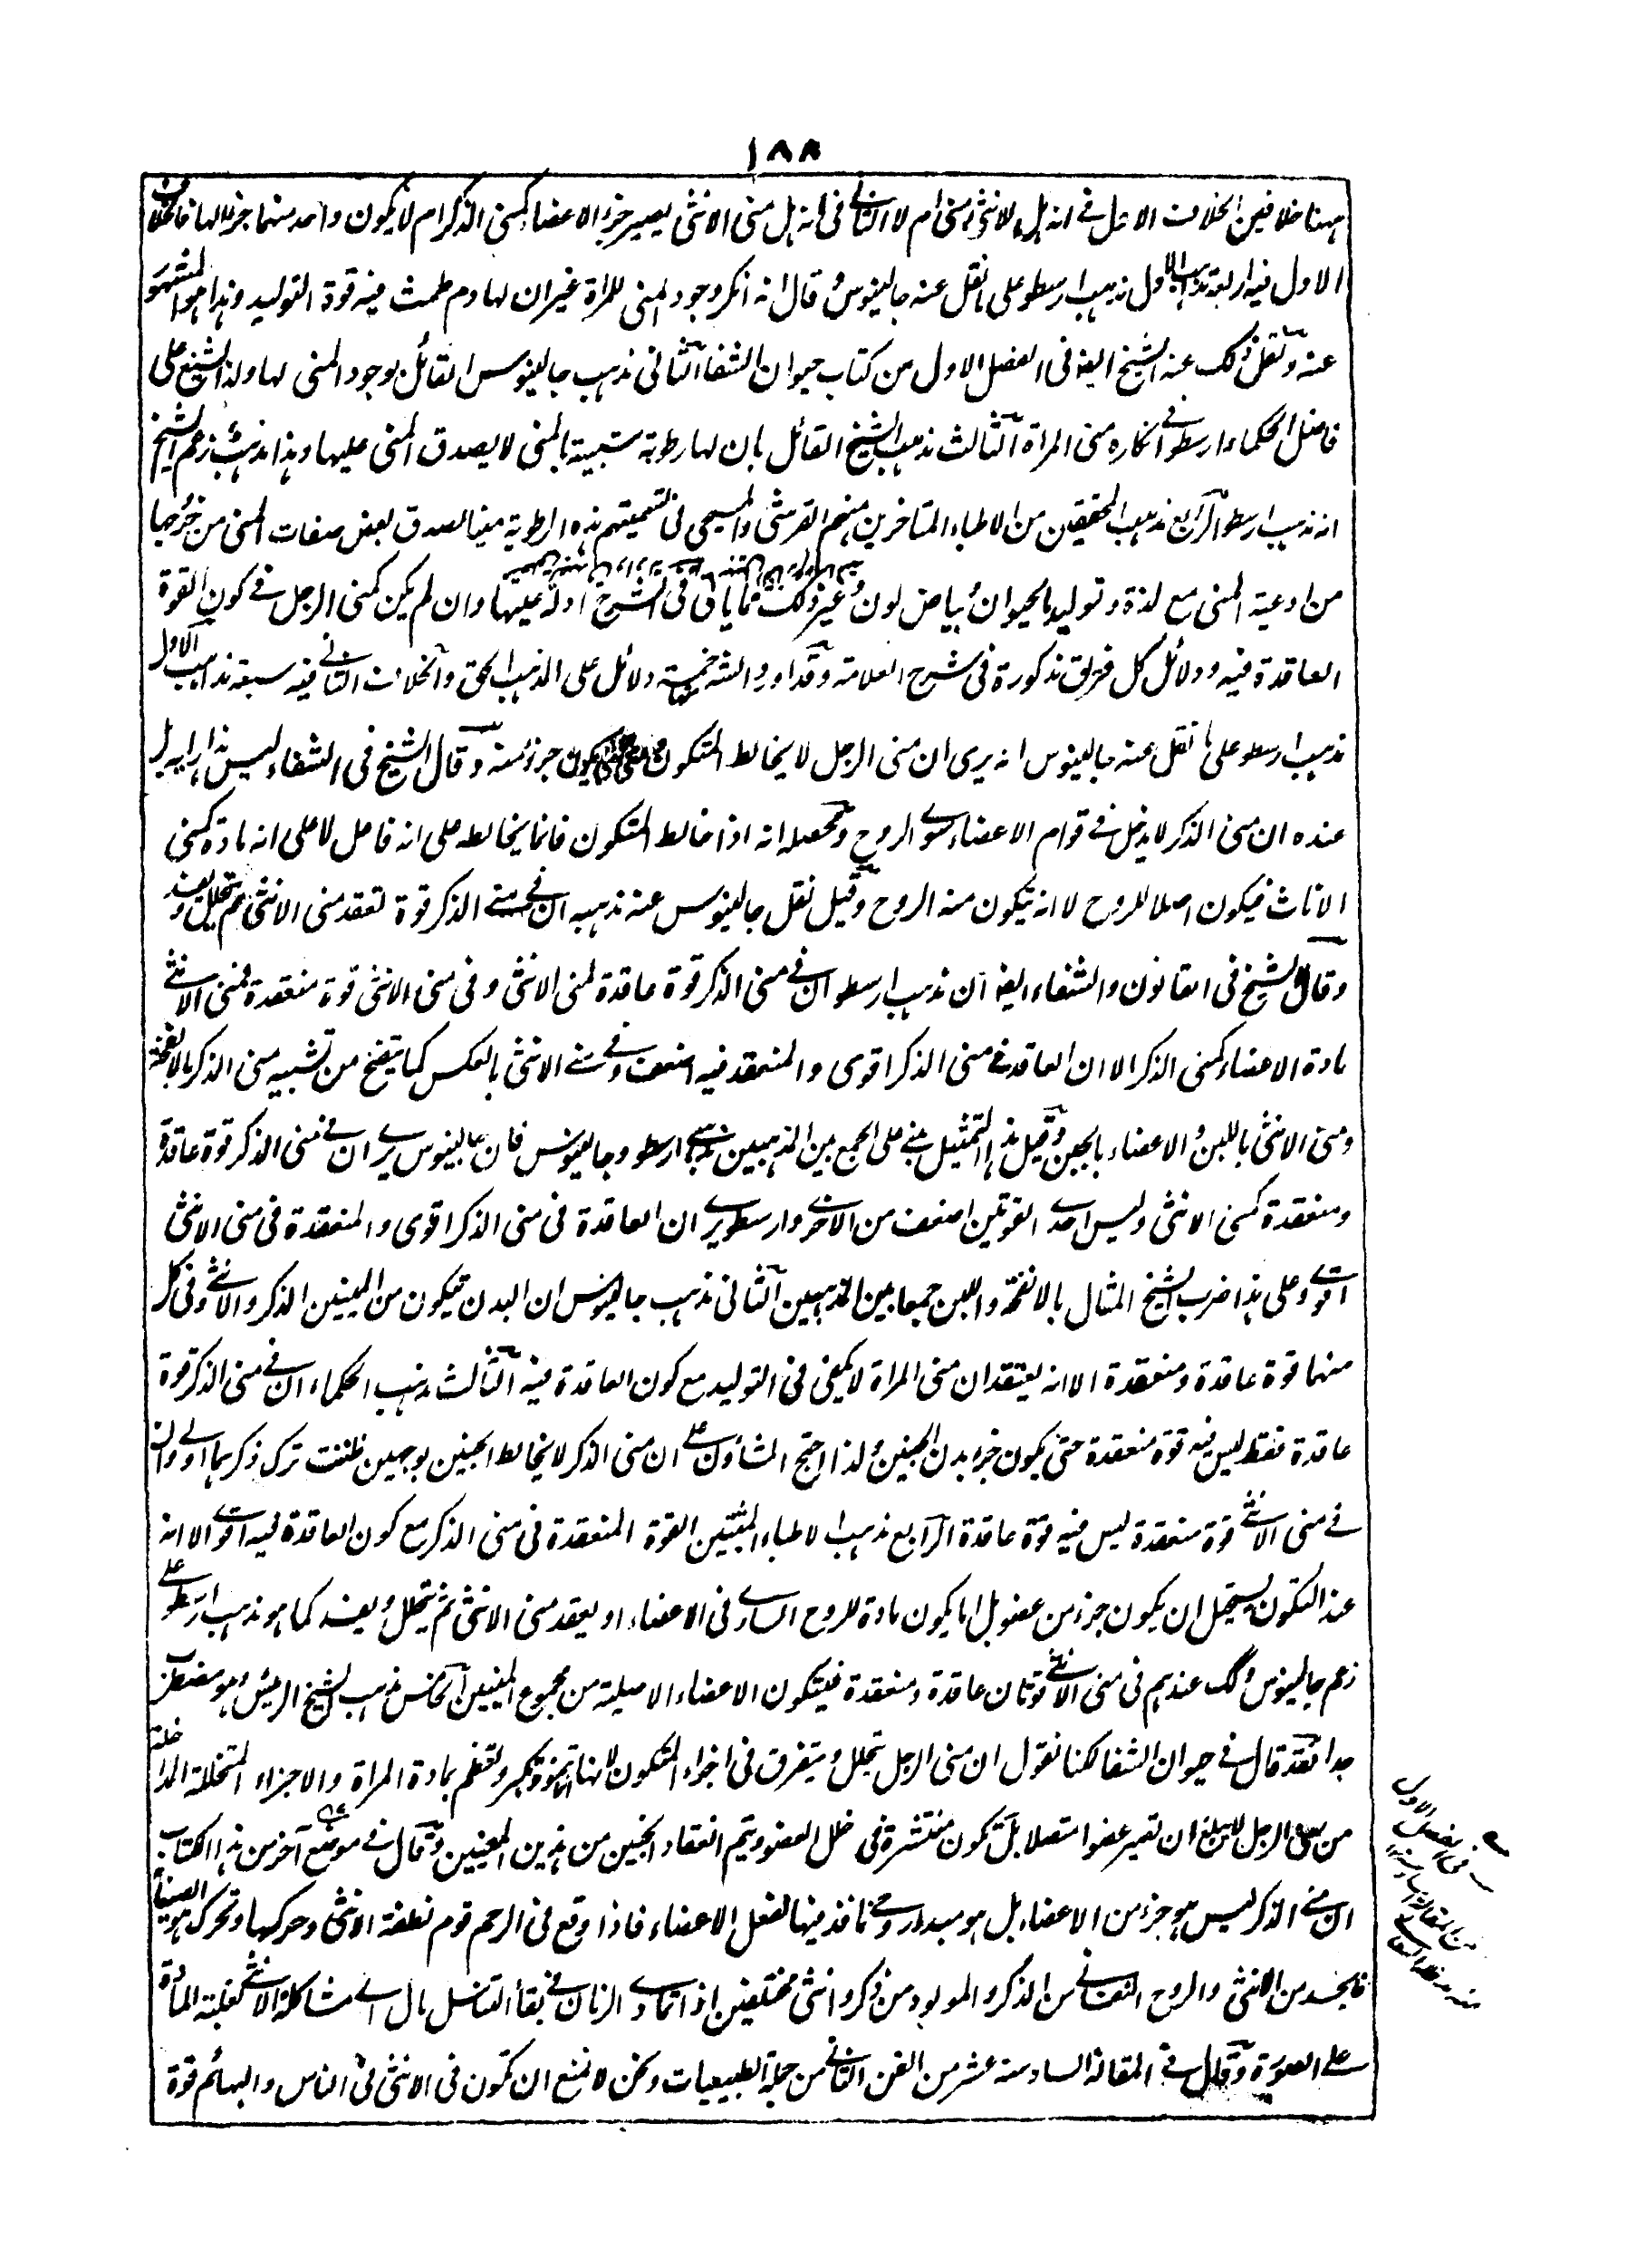 ١٨٨
ههنا خلافين الخلاف الاول في انه هل للانثى منى ام لا الثانى فى انه هل منى الانثى يصير جزء الاعضاء كمنى الذكر ام لا يكون واحد منهما جزء لها فالخلاف
الاول فيه اربعة مذاهب الاول مذهب ارسطو على ما نقل عنه جالينوس قال انه انكر وجود المنى للمراة غير ان لها دم طمث فيه قوة التوليد وهذا هو المشهور
عنه ونقل ذلك عنه الشيخ ايضا فى الفصل الاول من كتاب حيوان الشفا الثانى مذهب جالينوس القائل بوجود المنى لها ولذا شنع على
فاضل الحكماء ارسطو فى انكاره منى المراة الثالث مذهب الشيخ القائل بان لها رطوبة شبيهة بالمنى لا يصدق المنى عليها وهذا مذهب زعم الشيخ
انه مذهب ارسطو الرابع مذهب المحققين من الاطباء المتاخرين منهم القرشى والمسيحى فى تسميتهم هذه الرطوبة منيا لصدق بعض صفات المنى من خروجها
من اوعية المنى مع لذة وتوليد الحيوان وبياض لون وغير ذلك مما ياتى فى الشرح ادلة عليها وان لم يكن كمنى الرجل في كون القوة
العاقدة فيه ودلائل كل فريق مذكورة فى شرح العلامة وقد اورد الشه خمسة دلائل على المذهب الحق والخلاف الثانى فيه سبعة مذاهب الاول
مذهب ارسطو على ما نقل عنه جالينوس انه يرى ان منى الرجل لا يخالط المتكون حتى يكون جزء منه وقال الشيخ فى الشفاء ليس هذا رايه بل
عنده ان منى الذكر لا يدخل فى قوام الاعضاء سوى الروح ومحصله انه اذا خالط المتكون فانما يخالطه على انه فاعل لا على انه مادة كمنى
الاناث فيكون اصلا للروح لا انه يتكون منه الروح وقيل نقل جالينوس عنه مذهبه ان فى منى الذكر قوة تعقد منى الانثى ثم يتحلل ويفسد
وقال الشيخ فى القانون والشفاء ايضا ان مذهب ارسطو ان فى منى الذكر قوة عاقدة لمنى الانثى و فى منى الانثى قوة منعقدة فمنى الانثى
مادة الاعضاء كمنى الذكر الا ان العاقد فى منى الذكر اقوى و المنعقد فيه اضعف وفى منى الانثى بالعكس كما يتضح من تشبيه منى الذكر بالانفحة
ومنى الانثى باللبن والاعضاء بالجبن وقيل هذا التمثيل مبنى على الجمع بين المذهبين مذهبى ارسطو وجالينوس فان جالينوس يرى ان فى منى الذكر قوة عاقدة
ومنعقدة كمنى الانثى وليس احدى القوتين اضعف من الاخرى وارسطو يرى ان العاقدة فى منى الذكر اقوى والمنعقدة فى منى الانثى
اقوى وعلى هذا ضرب الشيخ المثال بالانفحة واللبن جمعا بين المذهبين الثانى مذهب جالينوس ان البدن يتكون من المنيين الذكر والانثى وفى كل
منهما قوة عاقدة ومنعقدة الا انه يعتقد ان منى المراة لا يكفى فى التوليد مع كون العاقدة فيه الثالث مذهب الحكماء ان فى منى الذكر قوة
عاقدة فقط ليس فيه قوة منعقدة حتى يكون جزء بدن الجنين ولذا احتج المشاؤن على ان منى الذكر لا يخالط الجنين بوجهين ظننت ترك ذكرهما اولى وان
فى منى الانثى قوة منعقدة ليس فيه قوة عاقدة الرابع مذهب الاطباء المثبتين القوة المنعقدة فى منى الذكر مع كون العاقدة فيه اقوى الا انه
عند التكون يستحيل ان يكون جزء من عضو بل اما يكون مادة للروح السارى فى الاعضاء او يعقد منى الانثى ثم يتحلل ويفسد كما هو مذهب ارسطو على
زعم جالينوس وكك عندهم فى منى الانثى قوتان عاقدة ومنعقدة فيتكون الاعضاء الاصلية من مجموع المنيين الخامس مذهب الشيخ الرئيس وهو مضطرب
جدا فقد قال فى حيوان الشفا لكنا نقول ان منى الرجل يتحلل ويتفرق فى اجزاء المتكون لانها تنمو وتكبر وتعظم بمادة المراة والاجزاء المتخللة المداخلة
من منى الرجل لا يبلغ ان تصير عضوا متصلا بل تكون منتشرة فى خلل العضو ويتم انعقاد الجنين من هذين المعنيين وقال فى موضع آخر من هذا الكتاب
ان منى الذكر ليس هو جزء من الاعضاء بل هو مبدء روحى نافذ فيها لفعل الاعضاء فاذا وقع فى الرحم قوم نطفة الانثى وحركها وتحرك هو ايضا
فالجسد من الانثى والروح النفسانى من الذكر والمولود من ذكر وانثى مختلفين اذا تمادى الزمان فى بقاء التناسل مال الى مشاكلة الانثى لغلبة المادة
على الصورة وقال فى المقالة السادسة عشر من الفن الثانى من جملة الطبيعيات ونحن لا نمنع ان تكون فى الانثى فى الناس والبهائم قوة